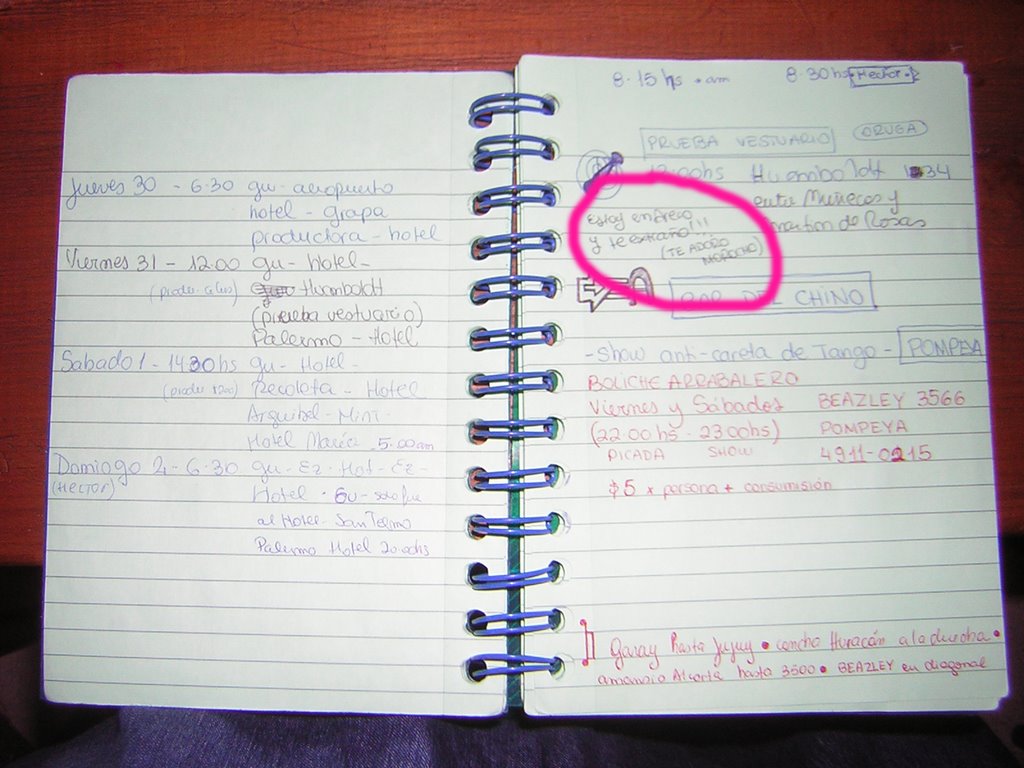 Jueves 30 - 6:30 gu- aeropuerto
hotel - grapa
productora - hotel
Viernes 31 - 12:00 gu- hotel-
Humboldt
(prueba vestuario)
Palermo - Hotel
Sabado 1 - 14:30hs gu- Hotel-
Recoleta - Hotel
Hotel María 5:00am
Domiogo 2 - 6:30 gu- Ez- Hot- Ez-
(HECTOR)
Hotel
al Hotel- San Telmo
Palermo Hotel 20:00hs
8:15 hs am 8:30hs Hector
PRUEBA VESTUARIO ORUGA
12:00hs Humboldt 1534
entre Muñecas y
de Rosas
Estoy en
y te extraño!!!
(TE ADORO
MOROCHO)
BAR DEL CHINO
- Show anti-careta de Tango - POMPEYA
BOLICHE ARRABALERO
Viernes y Sábados BEAZLEY 3566
(22:00hs - 23:00hs) POMPEYA
PICADA SHOW 4911-0215
$5 x persona + consumisión
Garay hasta Jujuy • cancha Huracán a la derecha •
amancio Alcorta hasta 3500 • BEAZLEY en diagonal